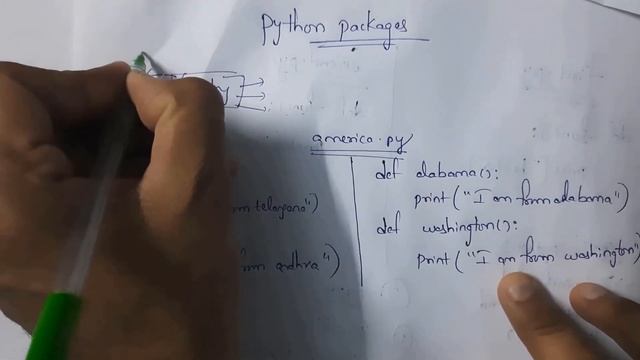 Python packages
america.py
def alabama():
print("I am form alabama")
om telagana")
def washington():
print("I am from washington")
om andhra")